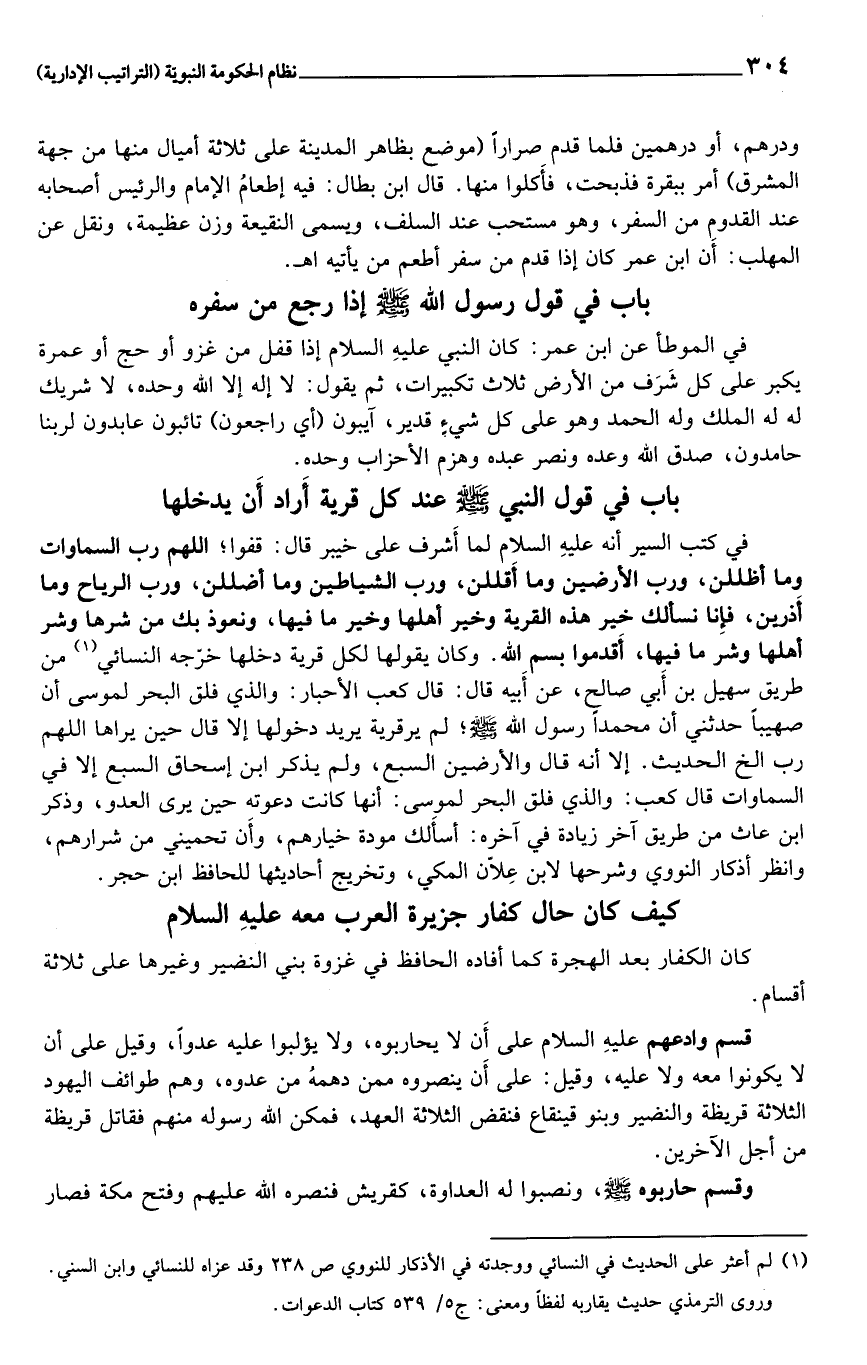 ٣٠٤ نظام الحكومة النبويّة (التراتيب الإدارية)
ودرهم، أو درهمين فلما قدم صراراً (موضع بظاهر المدينة على ثلاثة أميال منها من جهة
المشرق) أمر ببقرة فذبحت، فأكلوا منها. قال ابن بطال: فيه إطعامُ الإمام والرئيس أصحابه
عند القدوم من السفر، وهو مستحب عند السلف، ويسمى النقيعة وزن عظيمة، ونقل عن
المهلب: أن ابن عمر كان إذا قدم من سفر أطعم من يأتيه اهـ.
باب في قول رسول الله ﷺ إذا رجع من سفره
في الموطأ عن ابن عمر: كان النبي عليهِ السلام إذا قفل من غزو أو حج أو عمرة
يكبر على كل شَرَف من الأرض ثلاث تكبيرات، ثم يقول: لا إله إلا الله وحده، لا شريك
له له الملك وله الحمد وهو على كل شيءٍ قدير، آيبون (أي راجعون) تائبون عابدون لربنا
حامدون، صدق الله وعده ونصر عبده وهزم الأحزاب وحده.
باب في قول النبي ﷺ عند كل قرية أَراد أَن يدخلها
في كتب السير أنه عليهِ السلام لما أَشرف على خيبر قال: قفوا؛ اللهم رب السماوات
وما أظللن، ورب الأرضين وما أَقللن، ورب الشياطين وما أضللن، ورب الرياح وما
أَذرين، فإِنا نسألك خير هذه القرية وخير أهلها وخير ما فيها، ونعوذ بك من شرها وشر
أهلها وشر ما فيها، أَقدموا بسم الله. وكان يقولها لكل قرية دخلها خرّجه النسائي(١) من
طريق سهيل بن أَبي صالح، عن أَبيه قال: قال كعب الأحبار: والذي فلق البحر لموسى أن
صهيباً حدثني أن محمداً رسول الله ﷺ؛ لم يرقرية يريد دخولها إلا قال حين يراها اللهم
رب الخ الحديث. إلا أنه قال والأرضين السبع، ولم يذكر ابن إسحاق السبع إلا في
السماوات قال كعب: والذي فلق البحر لموسى: أنها كانت دعوته حين يرى العدو، وذكر
ابن عاث من طريق آخر زيادة في آخره: أسأَلك مودة خيارهم، وأَن تحميني من شرارهم،
وانظر أذكار النووي وشرحها لابن عِلاّن المكي، وتخريج أحاديثها للحافظ ابن حجر.
كيف كان حال كفار جزيرة العرب معه عليهِ السلام
كان الكفار بعد الهجرة كما أفاده الحافظ في غزوة بني النضير وغيرها على ثلاثة
أقسام.
قسم وادعهم عليهِ السلام على أَن لا يحاربوه، ولا يؤلبوا عليه عدواً، وقيل على أن
لا يكونوا معه ولا عليه، وقيل: على أَن ينصروه ممن دهمهُ من عدوه، وهم طوائف اليهود
الثلاثة قريظة والنضير وبنو قينقاع فنقض الثلاثة العهد، فمكن الله رسوله منهم فقاتل قريظة
من أجل الآخرين.
وقسم حاربوه ﷺ، ونصبوا له العداوة، كقريش فنصره الله عليهم وفتح مكة فصار
(١) لم أعثر على الحديث في النسائي ووجدته في الأذكار للنووي ص ٢٣٨ وقد عزاه للنسائي وابن السني.
وروى الترمذي حديث يقاربه لفظاً ومعنى: ج٥/ ٥٣٩ كتاب الدعوات.